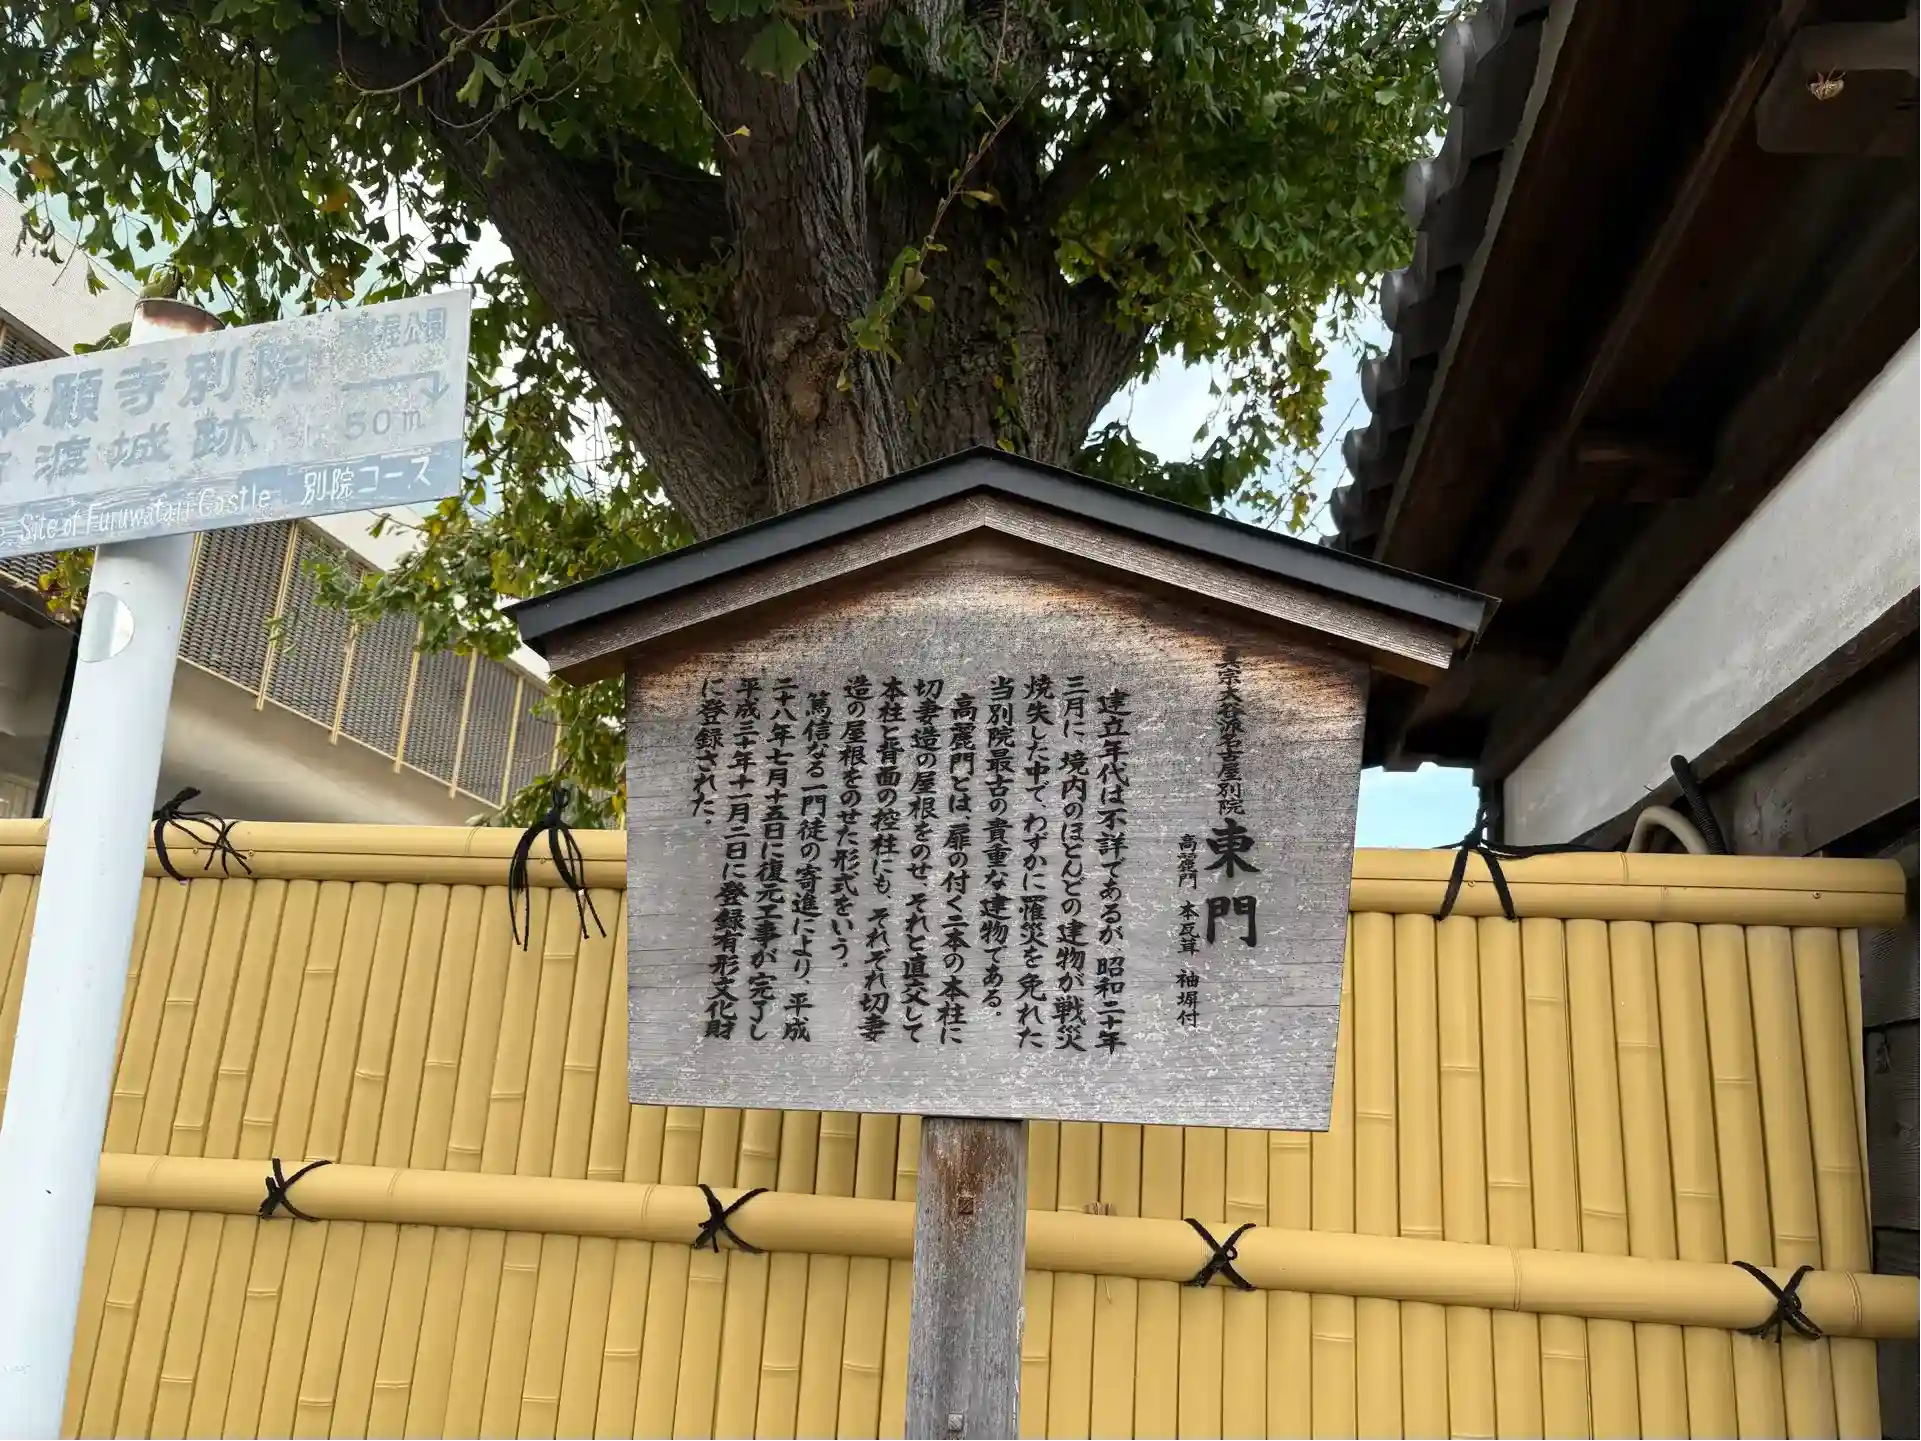 真宗大谷派名古屋別院 東門
高麗門 本瓦葺 袖塀付
建立年代は不詳であるが、昭和二十年
三月に、境内のほとんどの建物が戦災
焼失した中で、わずかに罹災を免れた
当別院最古の貴重な建物である。
高麗門とは、扉の付く二本の本柱に
切妻造の屋根をのせ、それと直交して
本柱と背面の控柱にも、それぞれ切妻
造の屋根をのせた形式をいう。
篤信なる一門徒の寄進により、平成
二十八年七月十五日に復元工事が完了し
平成三十年十一月二日に登録有形文化財
に登録された。
本願寺別院
渡城跡
屋公園
50m
Site of Furuwatari Castle 別院コース